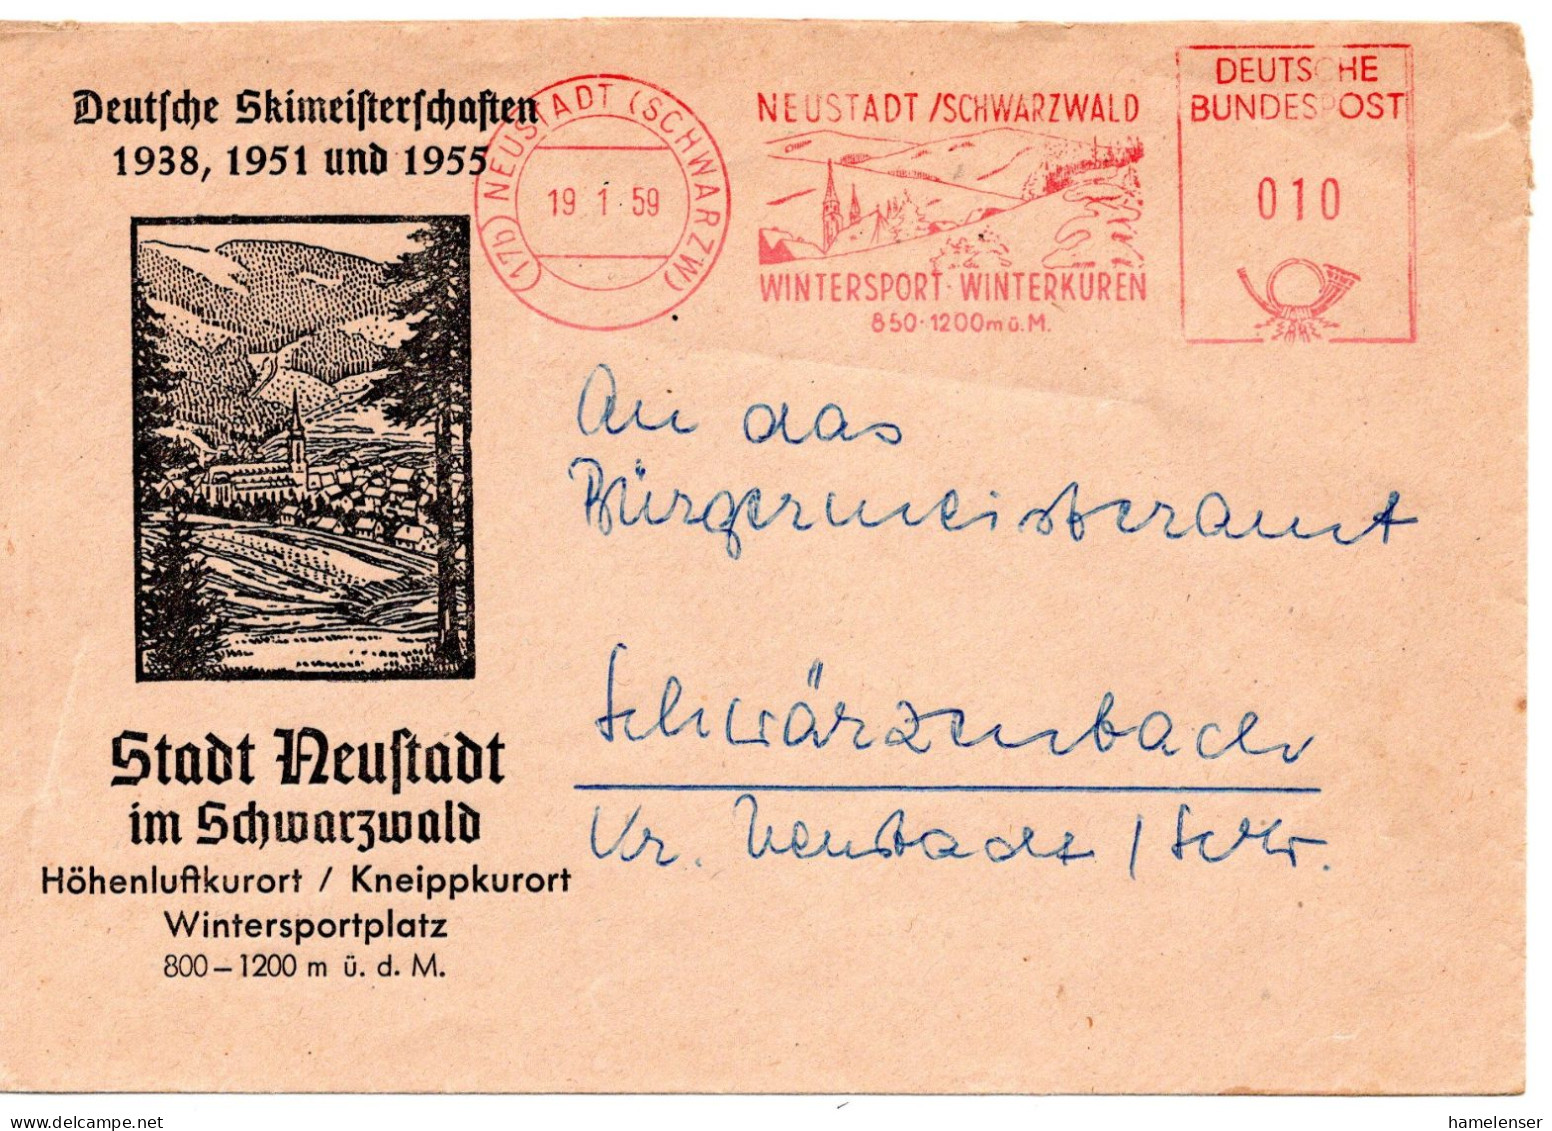 Deutsche Skimeisterschaften
1938, 1951 und 1955
(17b) NEUSTADT (SCHWARZW)
19 1 59
NEUSTADT /SCHWARZWALD
WINTERSPORT · WINTERKUREN
850 · 1200 m ü. M.
DEUTSCHE
BUNDESPOST
010
An das
Bürgermeisteramt
Schwärzenbach
Kr. Neustadt / Schw.
Stadt Neustadt
im Schwarzwald
Höhenluftkurort / Kneippkurort
Wintersportplatz
800 – 1200 m ü. d. M.
© Delcampe
hamelenser